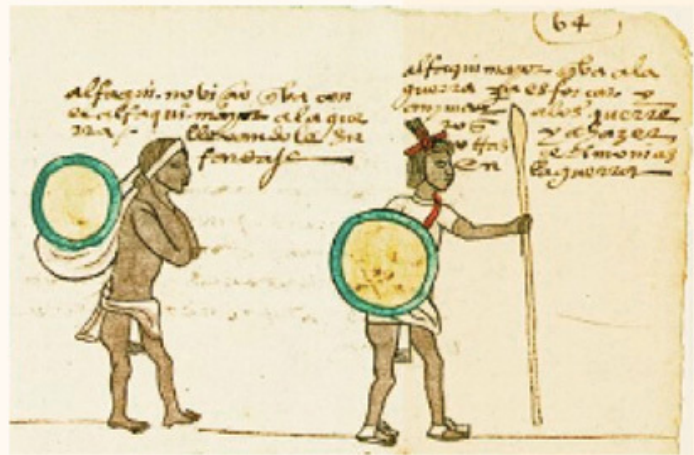 64
alfaqui. noviçio q̄ va con
el alfaqui mayor a la gue
rra / llevandole su
fardaje
alfaqui mayor q̄ va a la
guerra pa esforçar y
animar a los guerre
ros y a hazer
otras çerimonias
en la guerra